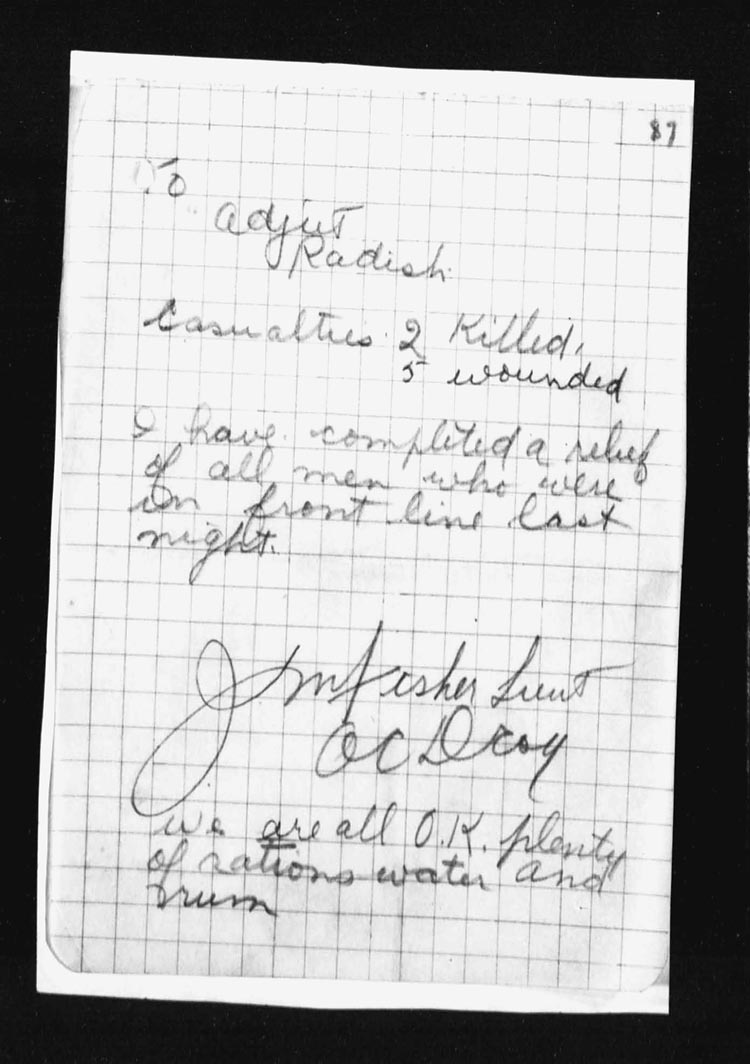 87
To
Adjut
Radish
Casualties 2 Killed,
5 wounded
I have completed a relief
of all men who were
in front line last
night.
J M Fisher Lieut
OC D Coy
we are all O.K. plenty
of rations water and
rum